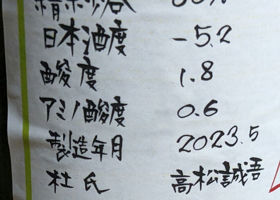 精米歩合 60%
日本酒度 -5.2
酸度 1.8
アミノ酸度 0.6
製造年月 2023.5
杜氏 高松誠吾